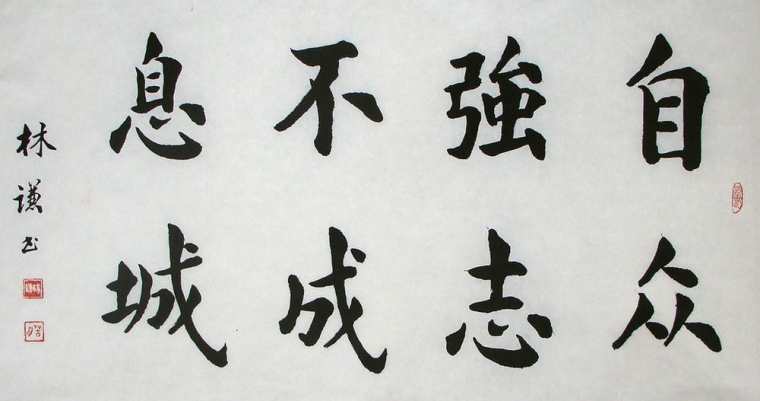 自強不息
众志成城
林谦书